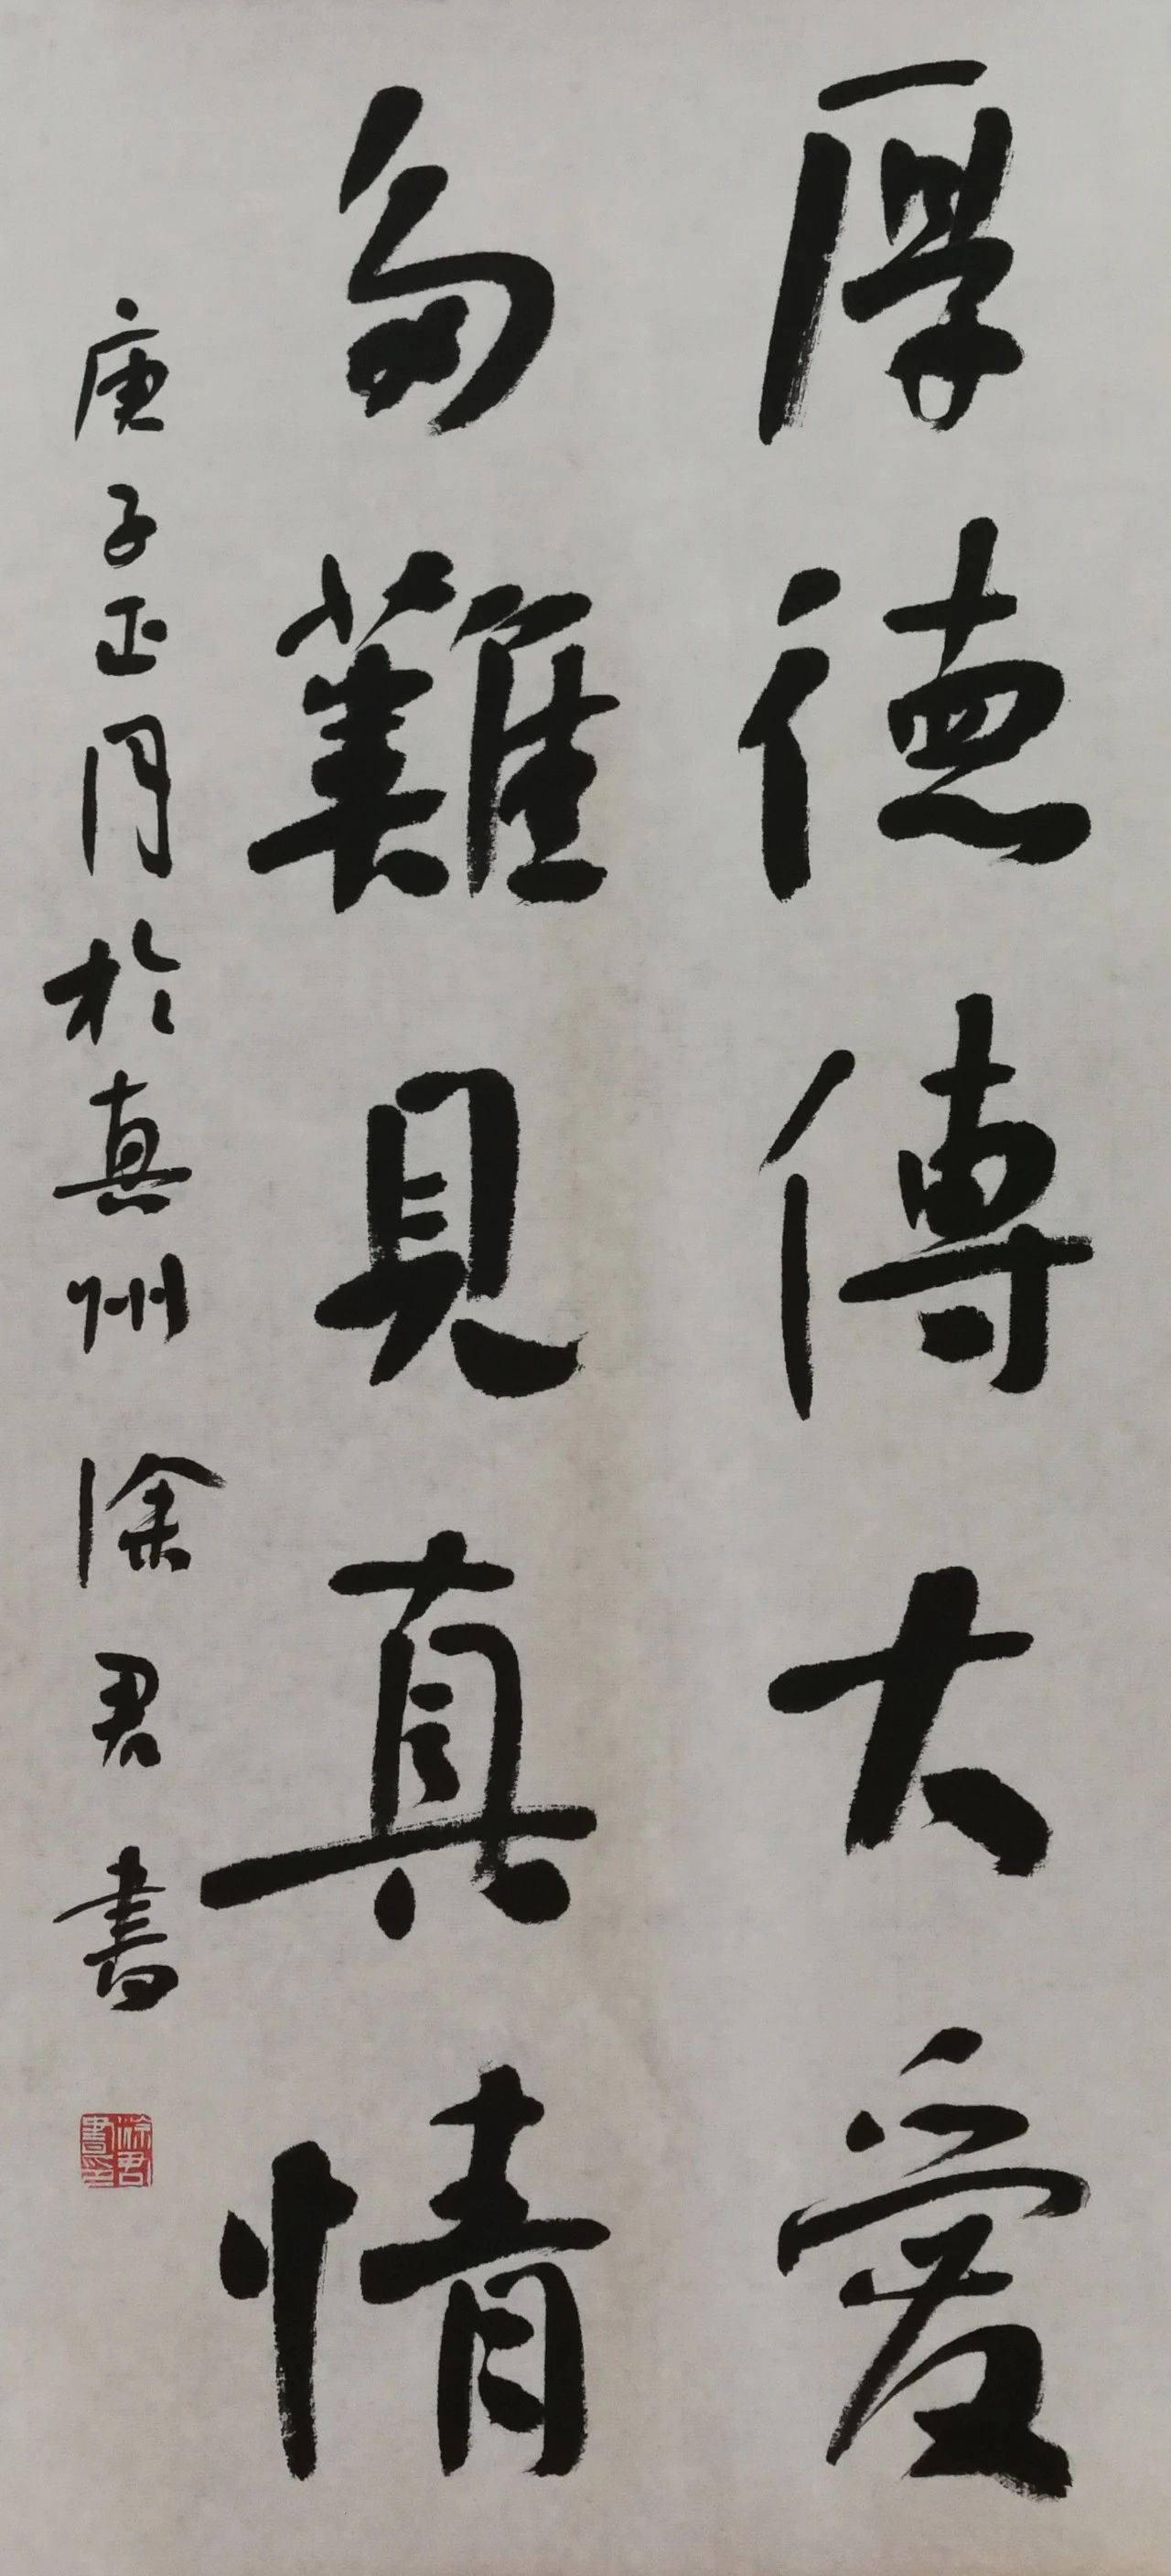 厚德傳大愛
多難見真情
庚子正月於真州徐君書
徐君書印